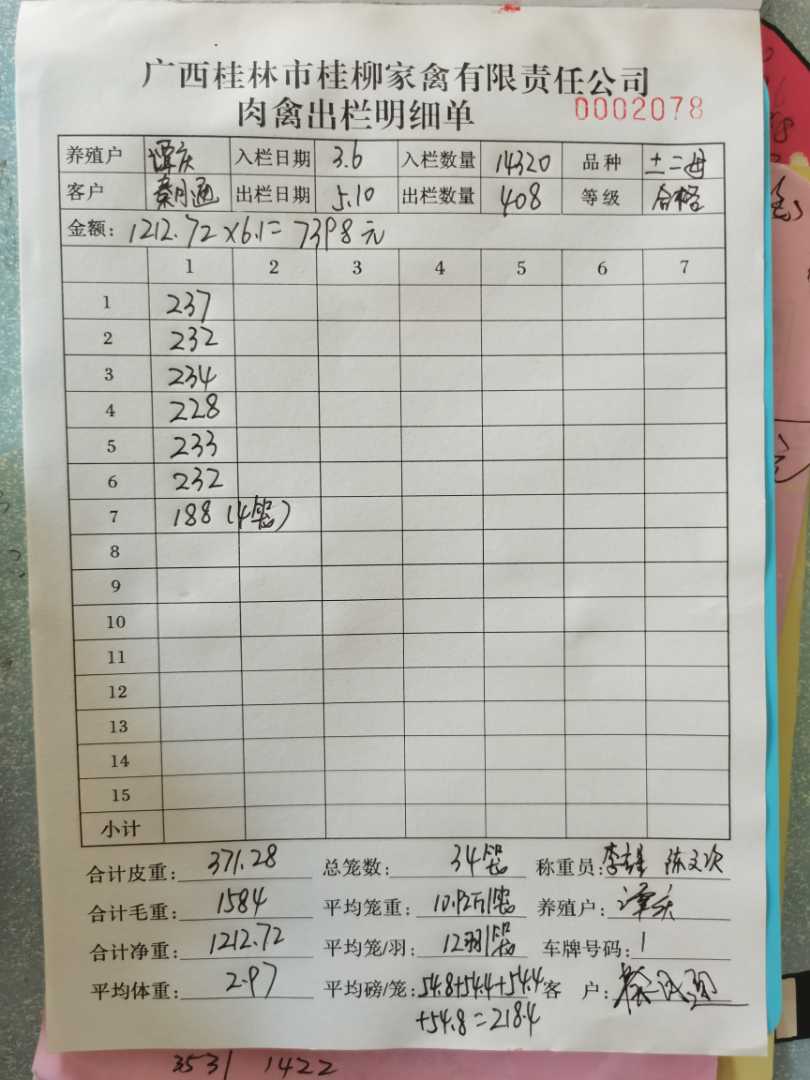 广西桂林市桂柳家禽有限责任公司
肉禽出栏明细单 0002078
养殖户 谭庆 入栏日期 3.6 入栏数量 14320 品种 土二母
客户 出栏日期 5.10 出栏数量 408 等级 合格
金额: 1212.72×6.1= 7398元
1 2 3 4 5 6 7
1 237
2 232
3 234
4 228
5 233
6 232
7 188 (4笼)
8
9
10
11
12
13
14
15
小计
合计皮重: 371.28 总笼数: 34笼 称重员:
合计毛重: 1584 平均笼重: 10.92斤/笼 养殖户: 谭庆
合计净重: 1212.72 平均笼/羽: 12羽/笼 车牌号码: 1
平均体重: 2.97 平均磅/笼: 54.8+54.4+54.4 客 户:
+54.8=218.4
3531 1422